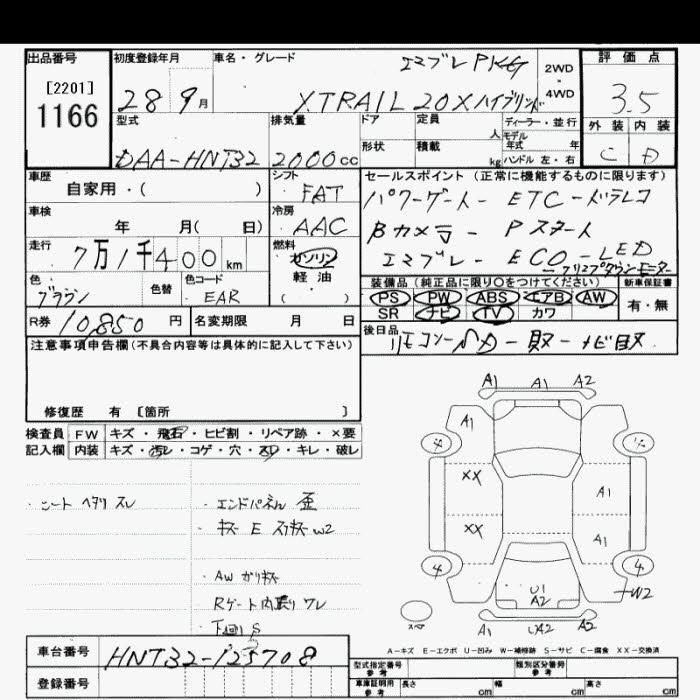 出品番号
[2201]
1166
初度登録年月
28 9月
車名・グレード
エマブレPKG
X.TRAIL 20Xハイブリッド
2WD
・
4WD
評価点
3.5
外装 内装
C D
型式
DAA-HNT32
排気量
2000cc
ドア
定員
人
形状
積載
kg
ディーラー・並行
モデル
年式 年
ハンドル 左・右
車歴
自家用・( )
シフト
FAT
車検
年 月( 日)
冷房
AAC
走行
7万1千400km
燃料
ガソリン
軽油
( )
色
ブラウン
色替
色コード
EAR
R券
10,850円
名変期限 月 日
セールスポイント(正常に機能するものに限ります)
パワーゲート- ETC-ドラレコ
Bカメラ- Pスタート
エマブレ- ECO-LED
装備品(純正品に限り○をつけてください)
PS PW ABS エアB AW
SR ナビ TV カワ
新車保証書
有・無
後日品
リモコン-SD-取-ナビ取
注意事項申告欄(不具合内容等は具体的に記入して下さい)
修復歴 有 [箇所 ]
検査員
記入欄
FW キズ・飛石・ヒビ割・リペア跡・×要
内装 キズ・汚レ・コゲ・穴・スレ・キレ・破レ
・シート ヘタリ スレ
・エンドパネル 歪
・キズ E スリキズ W2
・AW ガリキズ
Rゲート内張リ ワレ
・下廻リS
A1 A1 A2
A1
XX
A1
XX
A1
4
4
4
U1
A2
W2
A1 UA2 A2
A-キズ E-エクボ U-凹み W-補修跡 S-サビ C-腐食 XX-交換済
車台番号
HNT32-125708
登録番号
型式指定番号
参考
類別区分番号
参考
車庫証明用
参考
長さ cm
幅 cm
高さ cm